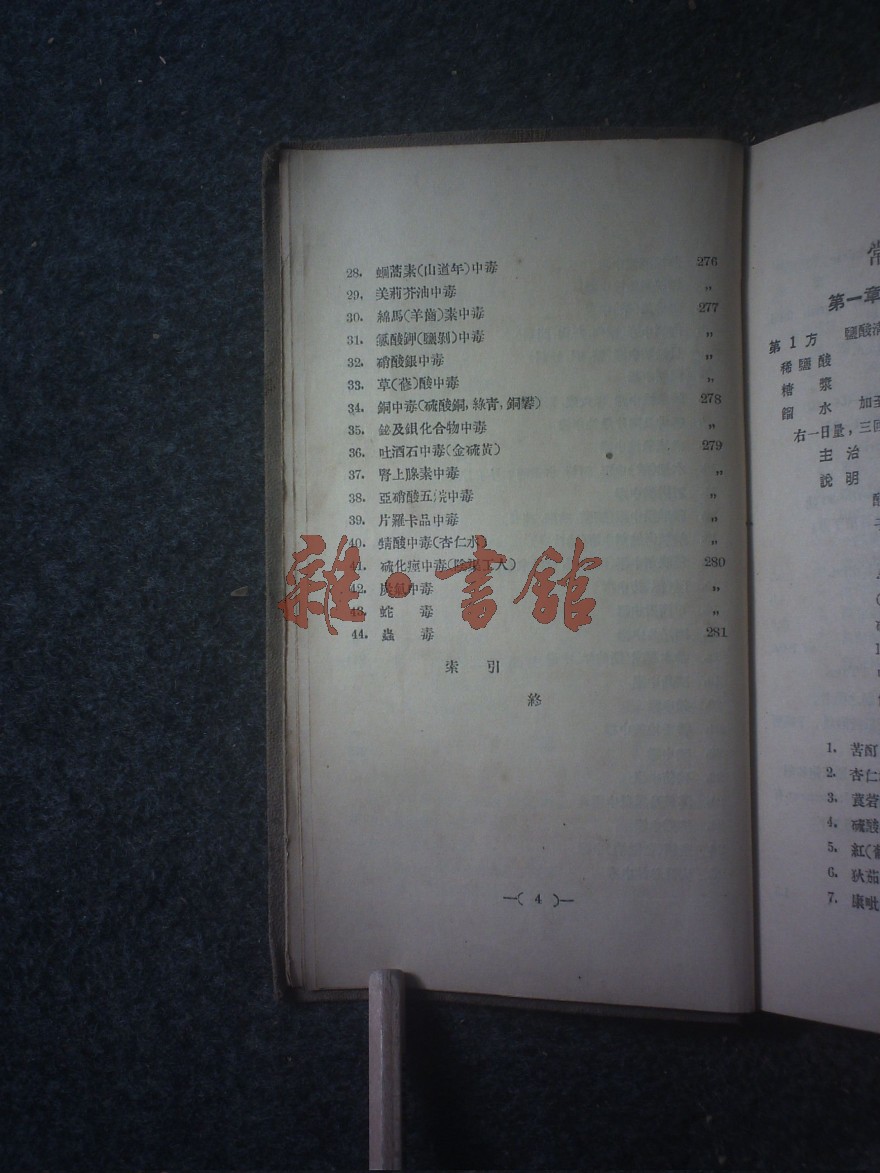 28. 蛔蒿素(山道年)中毒 276
29. 美莉芥油中毒 〃
30. 綿馬(羊齒)素中毒 277
31. 氯酸鉀(鹽剝)中毒 〃
32. 硝酸銀中毒 〃
33. 草(蓚)酸中毒 〃
34. 銅中毒(硫酸銅,綠青,銅礬) 278
35. 鉍及鋇化合物中毒 〃
36. 吐酒石中毒(金硫黃) 279
37. 腎上腺素中毒 〃
38. 亞硝酸五烷中毒 〃
39. 片羅卡品中毒 〃
40. 中毒(杏仁水) 〃
41. 硫化 中毒( 工人) 280
42. 中毒 〃
43. 蛇 毒 〃
44. 蟲 毒 281
索 引
終
—( 4 )—
雜·書館
第一章
第 1 方 鹽酸
稀 鹽 酸
糖 漿
餾 水 加至
右一日量,三回
主 治
說 明
1. 苦酊
2. 杏仁
3. 莨菪
4. 硫酸
5. 紅(
6. 狄茄
7. 康吡